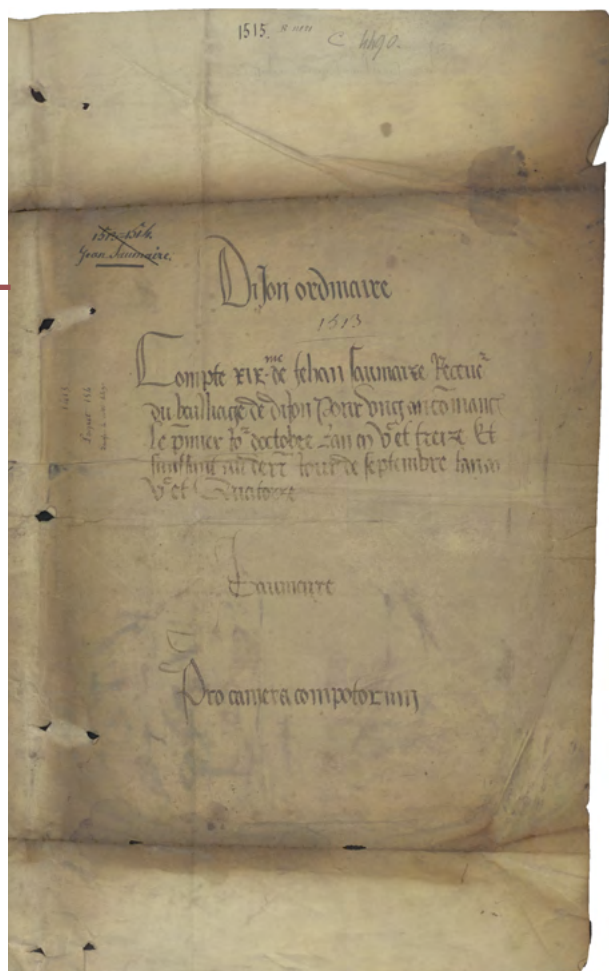 1515
C 4490.
1513=1514.
Jean Saumaire.
Dijon ordinaire
1513
Compte xix.me de Jehan Saumaire Receur
du bailliage de dijon Pour ung an comancé
le p̄mier Jor doctobre Lan m vc et treize Et
finissant au derr Jour de septembre lan m
vc et Quatorze
Saumaire
Pro camera compotorum